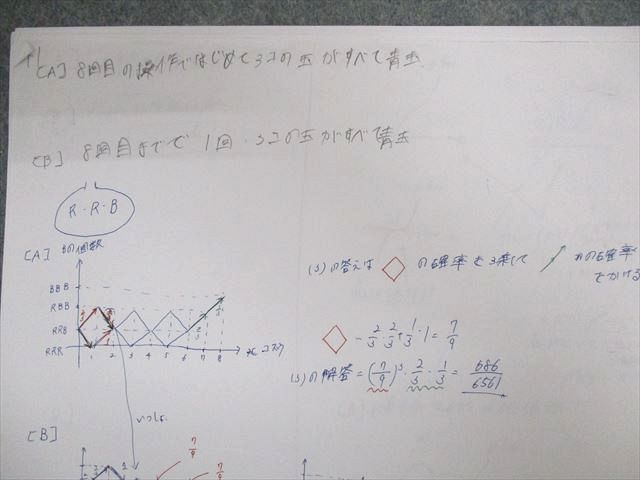 [A] 8回目の操作ではじめて3コの玉がすべて青玉
[B] 8回目までで 1回 3コの玉がすべて青玉
R・R・B
[A] Bの個数
(3)の答えは ◇ の確率を3乗して
の確率
でかける
BBB
RBB
RRB
RRR
1 2 3 4 5 6 7 8
◇ - 2/3・2/3+1/3・1 = 7/9
(3)の解答 = (7/9)³・2/3・1/3 = 686/6561
いっしょ
[B]
7/9
7/9